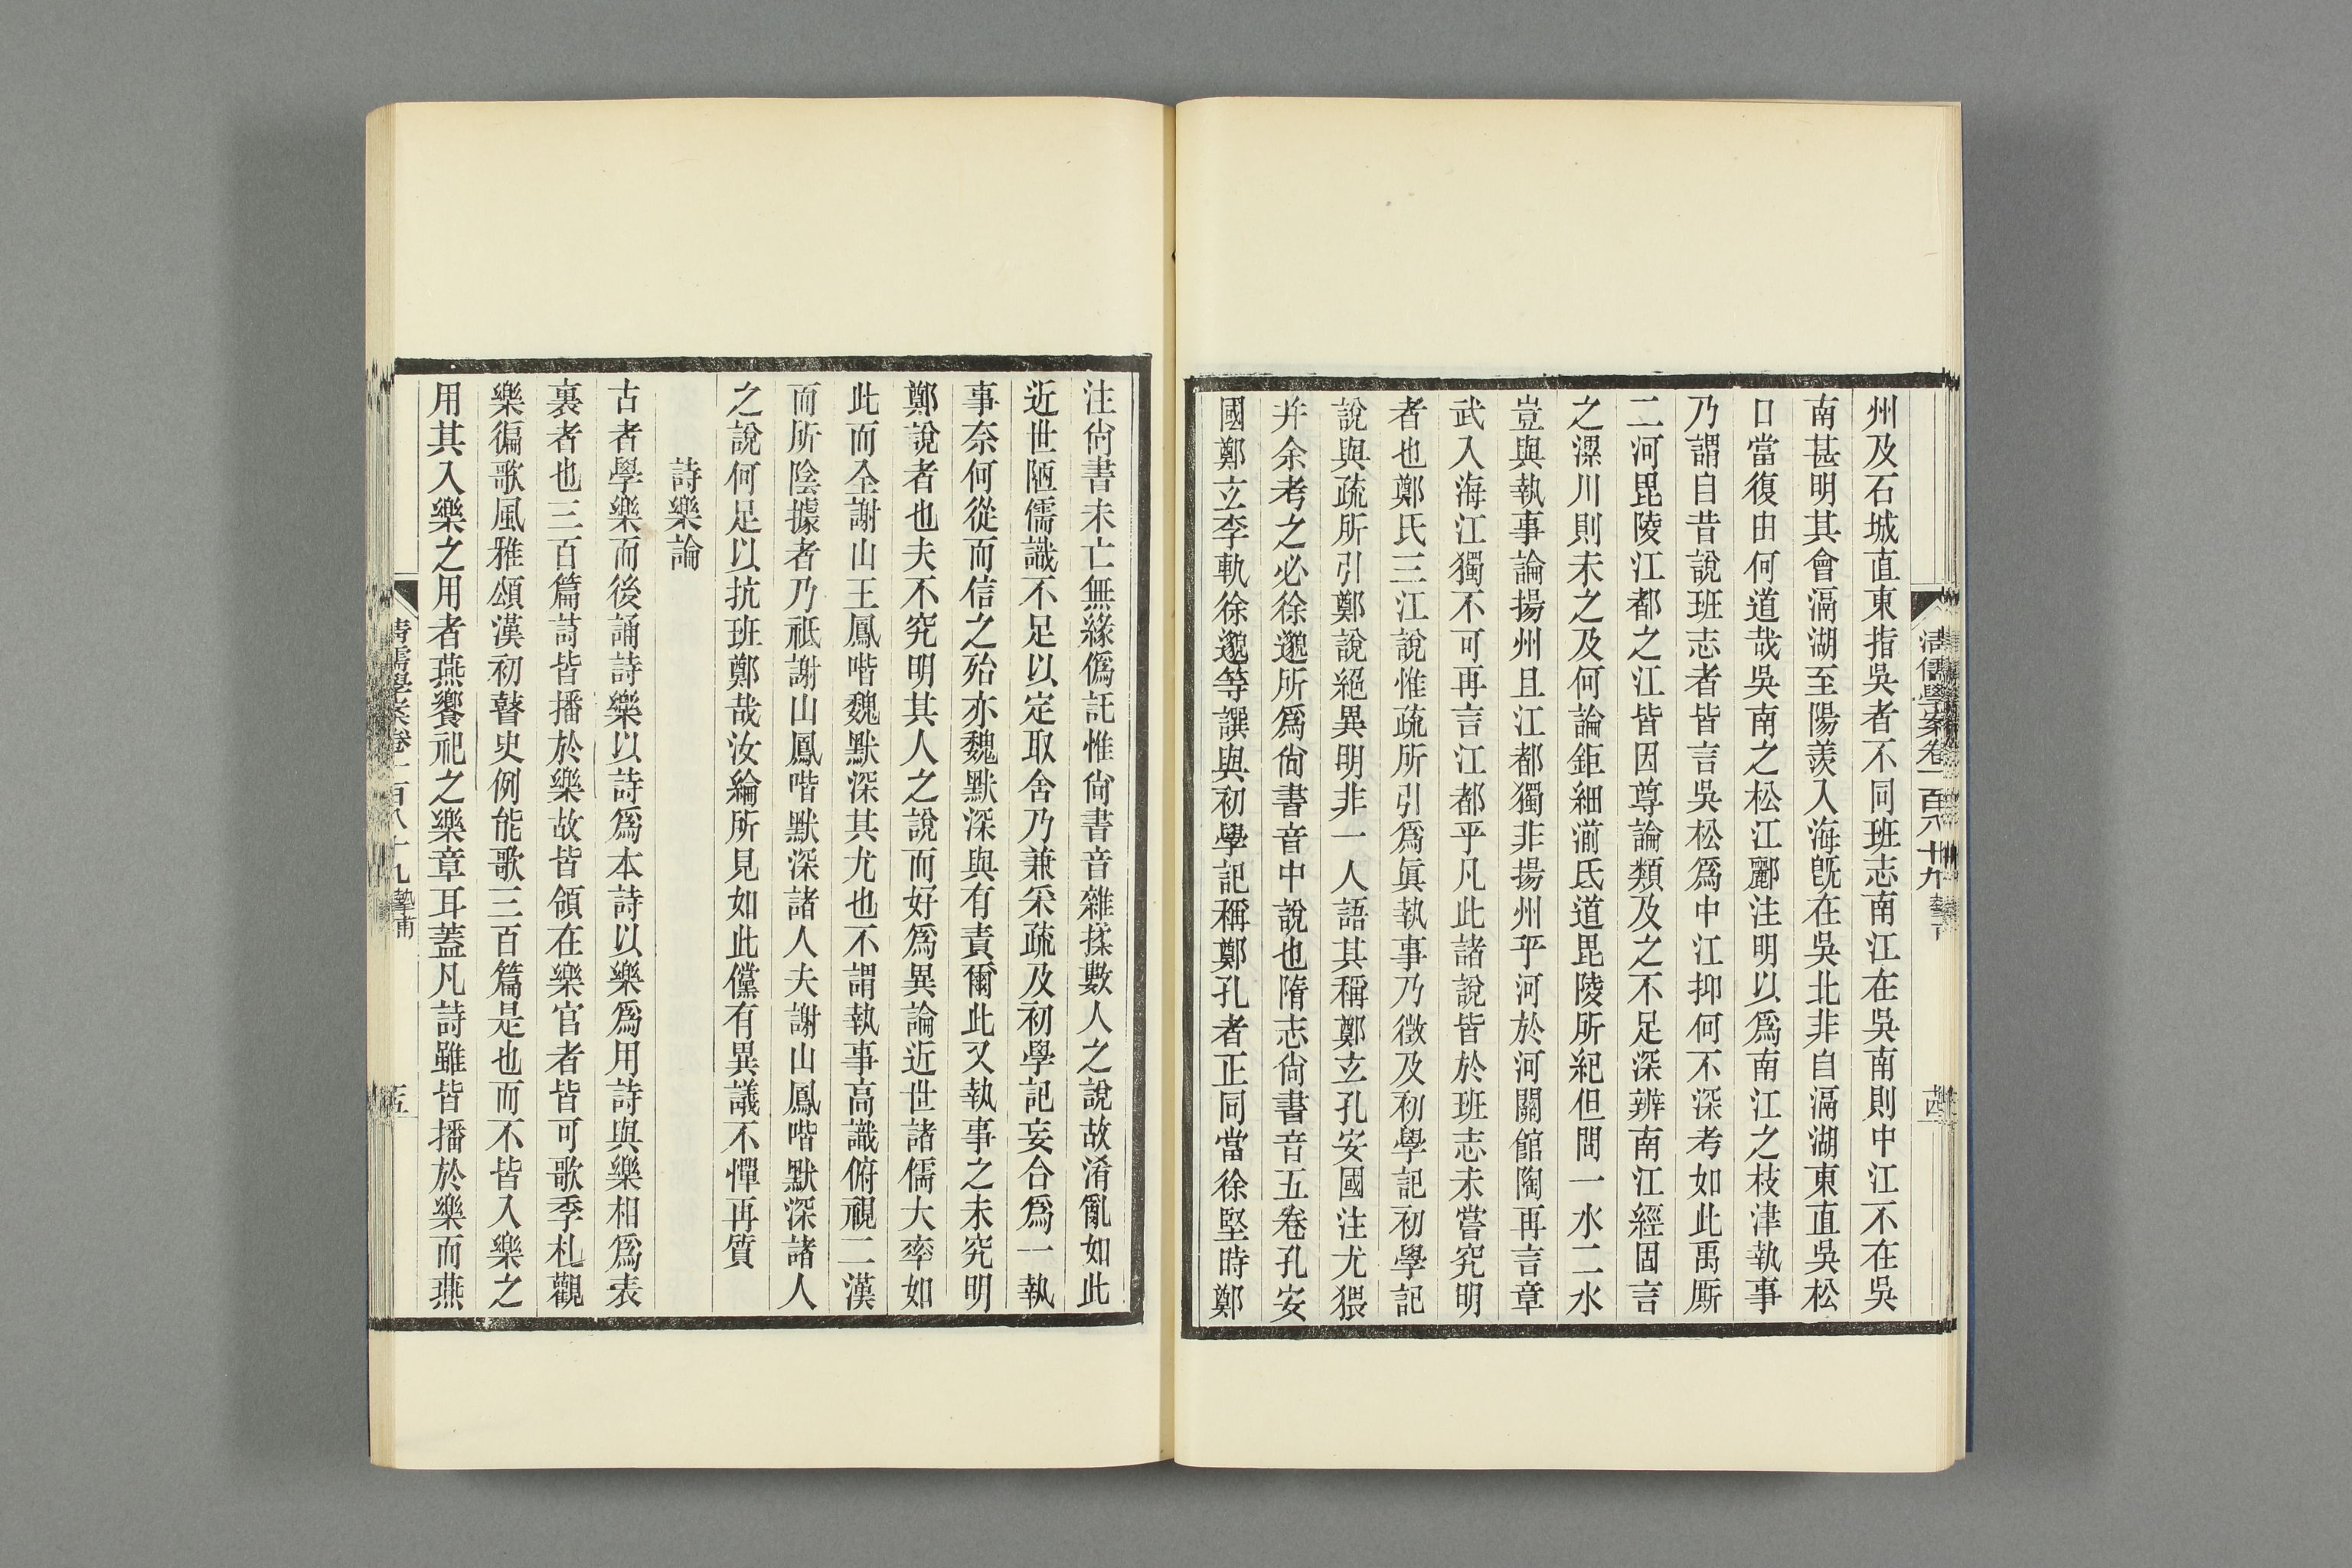 清儒學案卷一百八十九
州及石城直東指吳者不同班志南江在吳南則中江不在吳
南甚明其會滆湖至陽羨入海旣在吳北非自滆湖東直吳松
口當復由何道哉吳南之松江酈注明以爲南江之枝津執事
乃謂自昔說班志者皆言吳松爲中江抑何不深考如此禹厮
二河毘陵江都之江皆因尊論類及之不足深辨南江經固言
之漯川則未之及何論鉅細湔氐道毘陵所紀但閒一水二水
豈與執事論揚州且江都獨非揚州乎河於河關館陶再言章
武入海江獨不可再言江都乎凡此諸說皆於班志未嘗究明
者也鄭氏三江說惟疏所引爲眞執事乃徵及初學記初學記
說與疏所引鄭說絕異明非一人語其稱鄭玄孔安國注尤猥
幷余考之必徐邈所爲尙書音中說也隋志尙書音五卷孔安
國鄭玄李軌徐邈等譔與初學記稱鄭孔者正同當徐堅時鄭
注尙書未亡無緣僞託惟尙書音雜揉數人之說故淆亂如此
近世陋儒識不足以定取舍乃兼采疏及初學記妄合爲一執
事奈何從而信之殆亦魏默深與有責爾此又執事之未究明
鄭說者也夫不究明其人之說而好爲異論近世諸儒大率如
此而全謝山王鳳喈魏默深其尤也不謂執事高識俯視二漢
而所陰據者乃祗謝山鳳喈默深諸人夫謝山鳳喈默深諸人
之說何足以抗班鄭哉汝綸所見如此儻有異議不憚再質
詩樂論
古者學樂而後誦詩樂以詩爲本詩以樂爲用詩與樂相爲表
裏者也三百篇詩皆播於樂故皆領在樂官者皆可歌季札觀
樂徧歌風雅頌漢初瞽史例能歌三百篇是也而不皆入樂之
用其入樂之用者燕饗祀之樂章耳蓋凡詩雖皆播於樂而燕
清儒學案卷一百八十九 摯甫
五